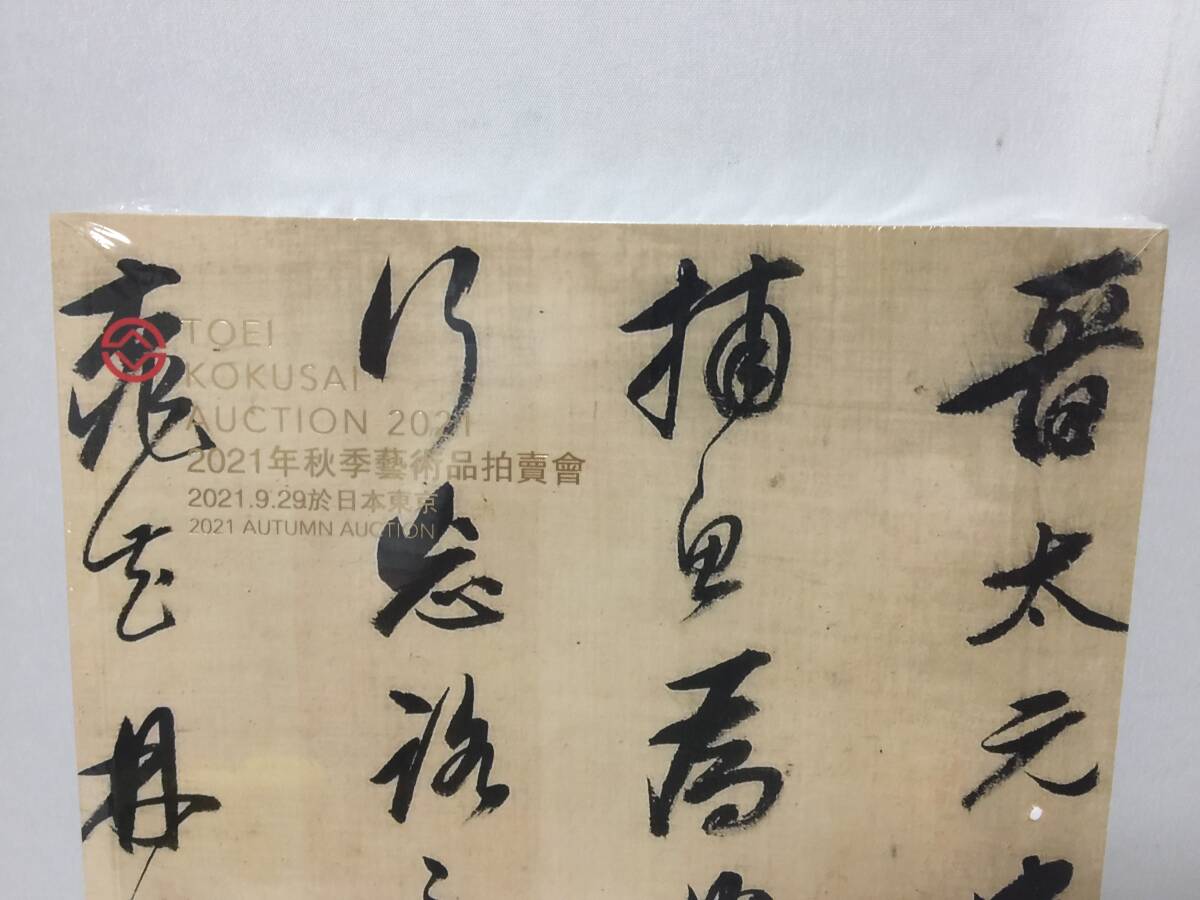 晉太元中
捕魚為
行忘路之
桃花林
TOEI
KOKUSAI
AUCTION 2021
2021年秋季藝術品拍賣會
2021.9.29於日本東京
2021 AUTUMN AUCTION